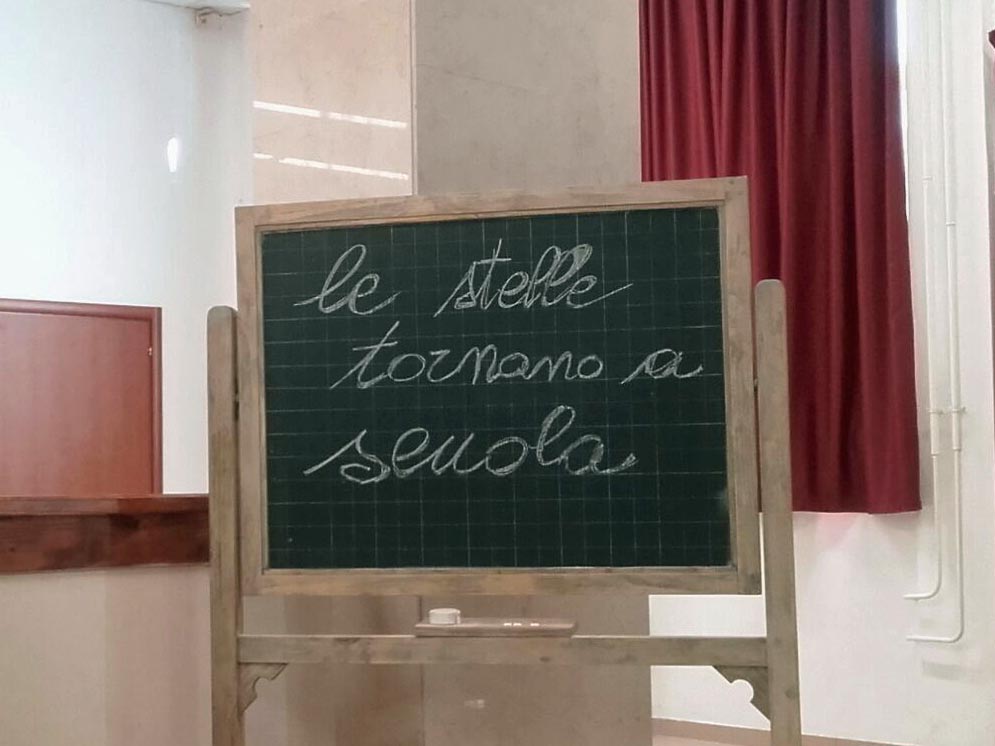 le stelle
tornano a
scuola